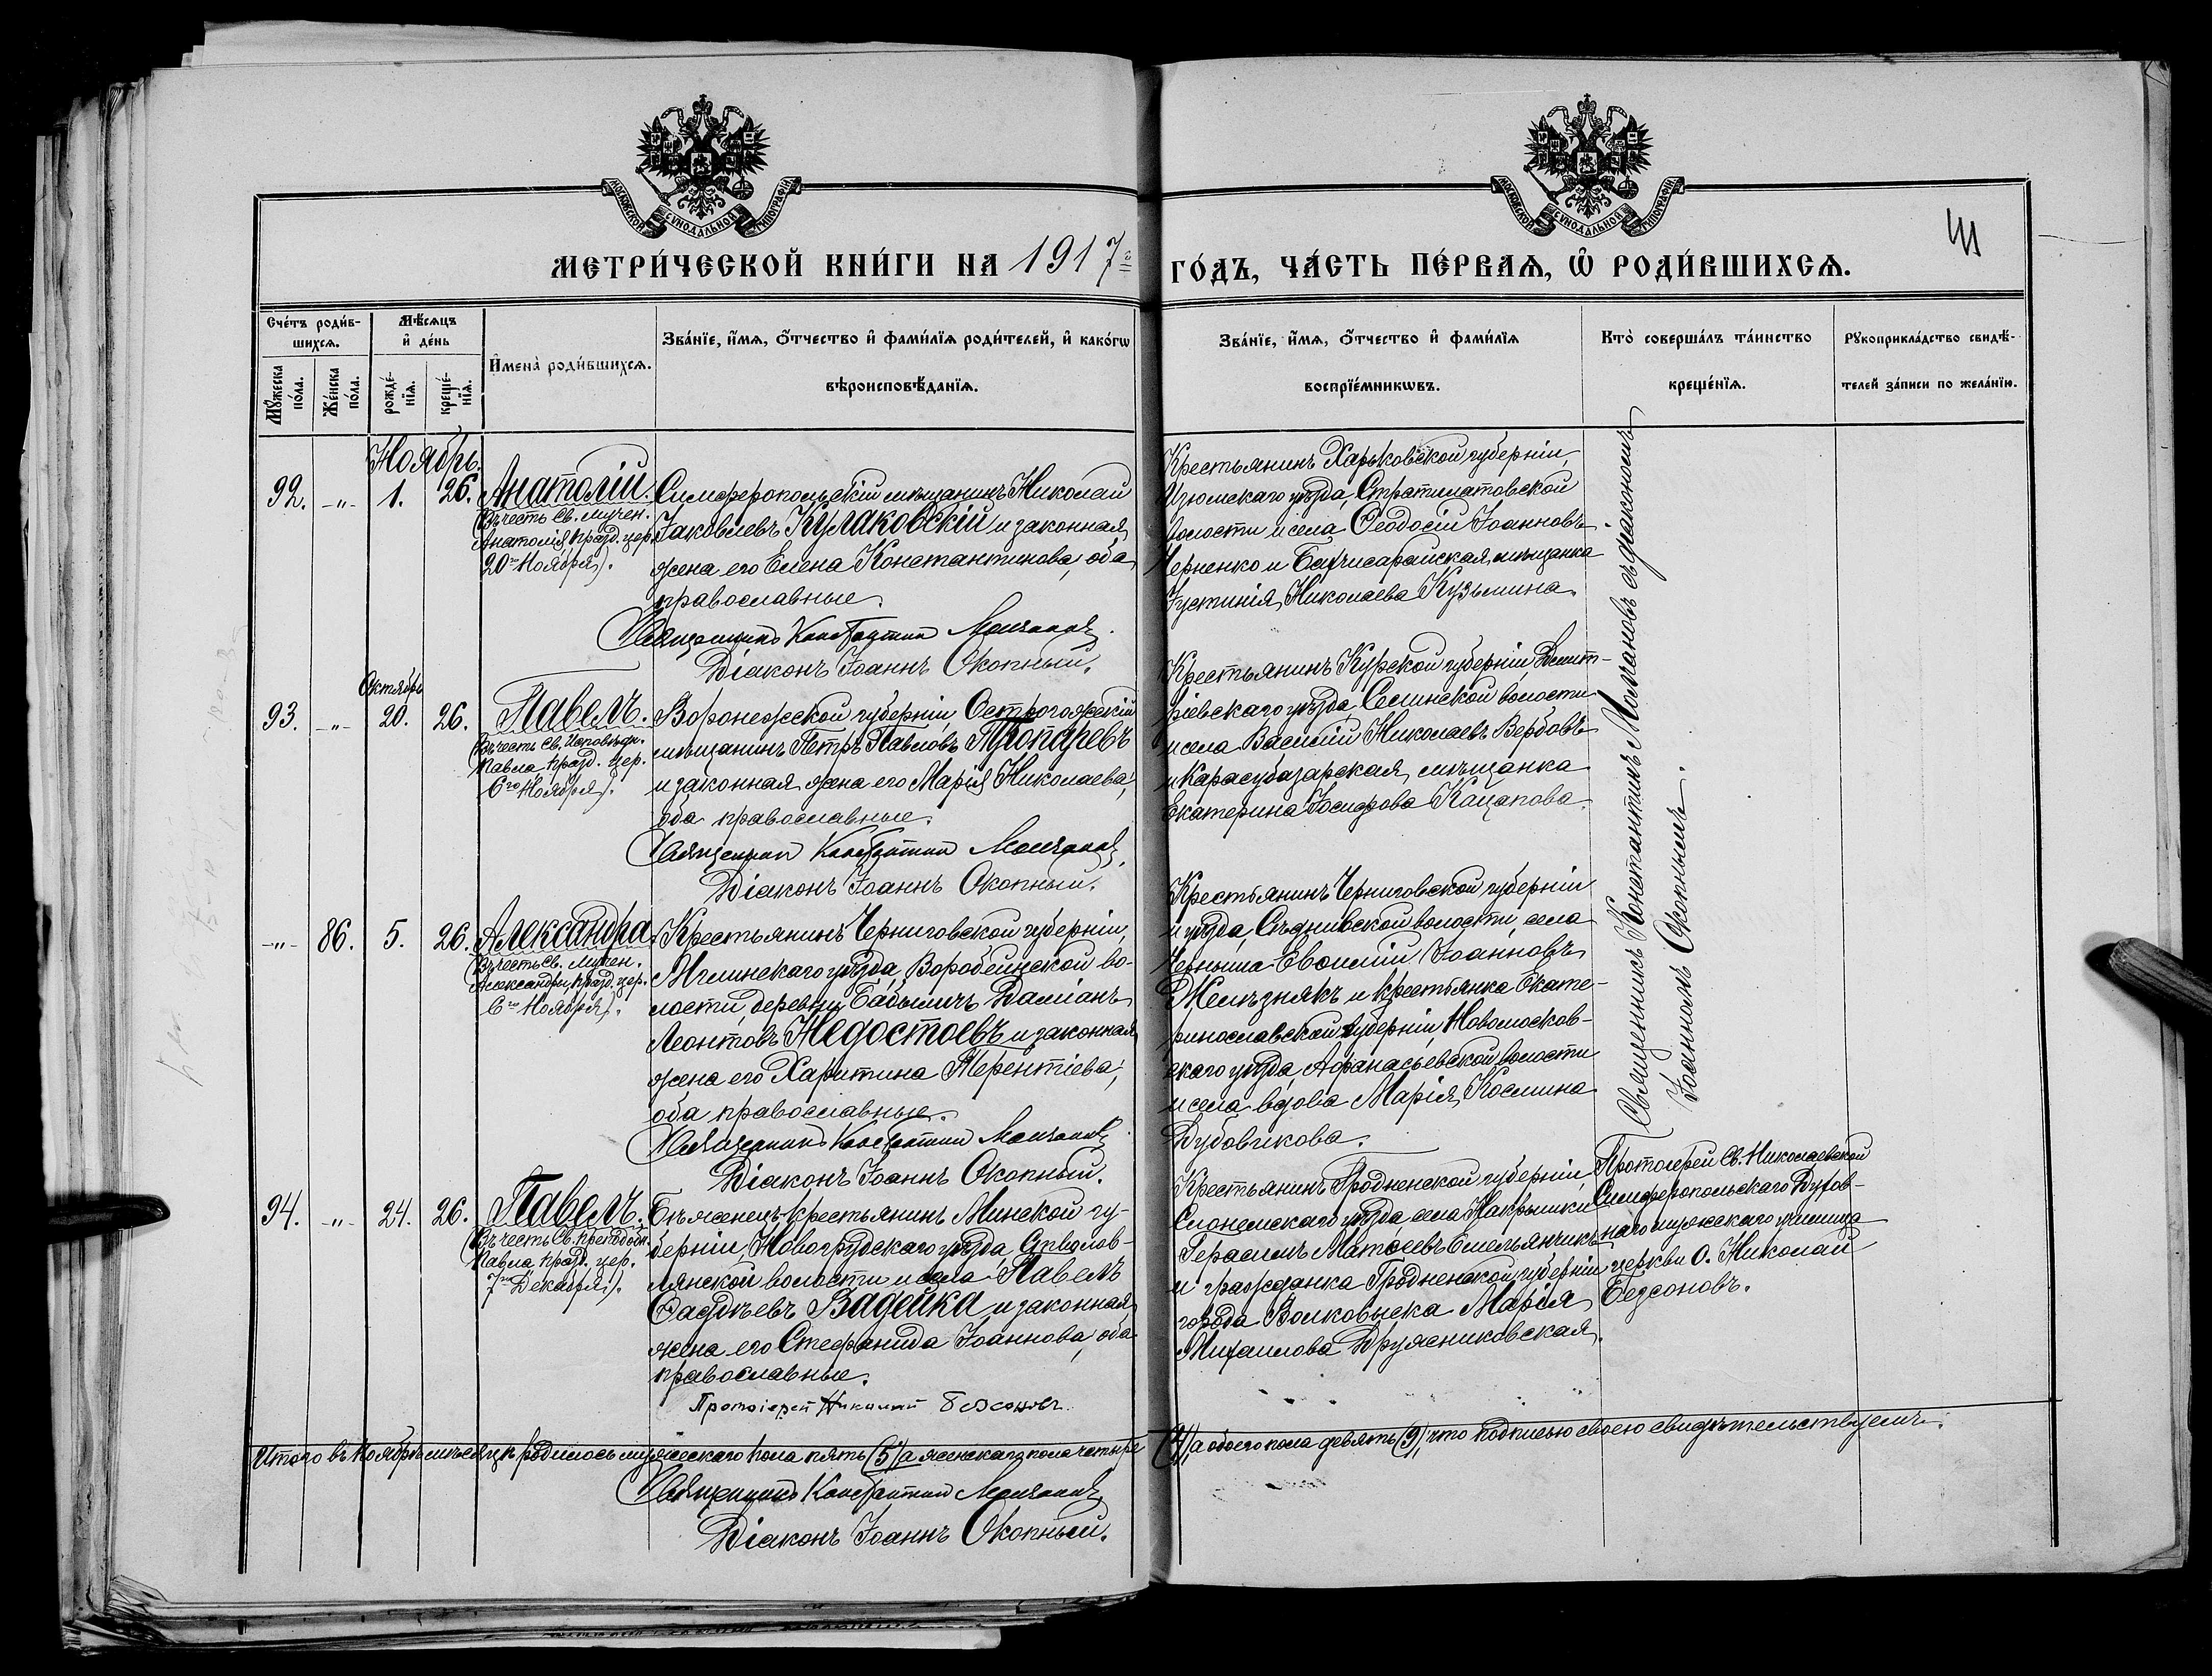 МОСКОВСКОЙ СѴНОДАЛЬНОЙ ТИПОГРАФІИ
МОСКОВСКОЙ СѴНОДАЛЬНОЙ ТИПОГРАФІИ
МЕТРИ́ЧЕСКОЙ КНИ́ГИ НА 1917 г.
ГО́ДЪ, ЧА́СТЬ ПЕ́РВАѦ, Ѡ҆ РОДИ́ВШИХСѦ.
Сче́тъ роди́в-
шихсѧ.
Мꙋ́жеска
по́ла.
Же́нска
по́ла.
Мѣ́сѧцъ
и҆ де́нь
рожде́-
нїѧ.
креще́-
нїѧ.
И҆мена̀ роди́вшихсѧ.
Зва́нїе, и҆́мѧ, ѻ҆́тчество и҆ фами́лїѧ роди́телей, и҆ како́гѡ
вѣроисповѣ́данїѧ.
Зва́нїе, и҆́мѧ, ѻ҆́тчество и҆ фами́лїѧ
воспрїе́мникѡвъ.
Кто̀ соверша́лъ та́инство
креще́нїѧ.
Рꙋкоприкла́дство свидѣ́-
телей за́писи по жела́нїю.
Ноябрь.
92. -"- 1. 26. Анатолій.
(Въ честь Св. мучен.
Анатолія, празд. цер.
20го Ноября).
Симферопольскій мѣщанинъ Николай
Іаковлевъ Кулаковскій и законная
жена его Елена Константинова, оба
православные.
Священникъ Константинъ Молчановъ.
Діаконъ Іоаннъ Окопный.
Крестьянинъ Харьковской губерніи,
Изюмскаго уѣзда, Стратилатовской
волости и села Ѳеодосій Іоанновъ
Черненко и Бахчисарайская мѣщанка
Іустинія Николаева Кузьмина.
Октябрь
93. -"- 20. 26. Павелъ.
(Въ честь Св. Исповѣдн.
Павла празд. цер.
6го Ноября).
Воронежской губерніи Острогожскій
мѣщанинъ Петръ Павловъ Тропаревъ
и законная жена его Марія Николаева,
оба православные.
Священникъ Константинъ Молчановъ.
Діаконъ Іоаннъ Окопный.
Крестьянинъ Курской губерніи, Дмит-
ріевскаго уѣзда Селинской волости
и села Василій Николаевъ Вербовъ
и Карасубазарская мѣщанка
Екатерина Іосифова Кацапова.
-"- 86. 5. 26. Александра.
(Въ честь Св. Мучен.
Александры, празд. цер.
6го Ноября).
Крестьянинъ Черниговской губерніи,
Мглинскаго уѣзда, Воробеинской во-
лости, деревни Бабыличъ Даміанъ
Леонтовъ Недостоевъ и законная
жена его Харитина Терентіева,
оба православные.
Священникъ Константинъ Молчановъ
Діаконъ Іоаннъ Окопный.
Крестьянинъ Черниговской губерніи
и уѣзда, Сѣдневской волости, села
Черныша Евѳимій Іоанновъ
Желѣзнякъ и крестьянка Екате-
ринославской губерніи, Новомосков-
скаго уѣзда, Афанасьевской волости
и села вдова Марія Космина
Дубовикова.
Священникъ Константинъ Молчановъ съ діакономъ
Іоанномъ Окопнымъ.
94. -"- 24. 26. Павелъ.
(Въ честь Св. преподобн.
Павла празд. цер.
7го Декабря).
Бѣженецъ-крестьянинъ Минской гу-
берніи, Новогрудскаго уѣзда,
волости и села Павелъ
Ѳаддѣевъ Вадейка и законная
жена его Стефанида Іоаннова, оба
православные.
Протоіерей Николай Безсоновъ.
Крестьянинъ Гродненской губерніи,
Слонимскаго уѣзда села Накрышки
Герасимъ Матѳеевъ Емельянчикъ
и гражданка Гродненской губерніи
города Волковыска Марія
Михаилова Дружниковская.
Протоіерей Св. Николаевской
Симферопольскаго Духов-
наго мужскаго училища
церкви о. Николай
Безсоновъ.
Итого въ Ноябрѣ мѣсяцѣ родилось мужескаго пола пять (5), а женскаго пола четыре (4), а обоего пола девять (9), что подписью своею свидѣтельствуемъ.
Священникъ Константинъ Молчановъ
Діаконъ Іоаннъ Окопный.